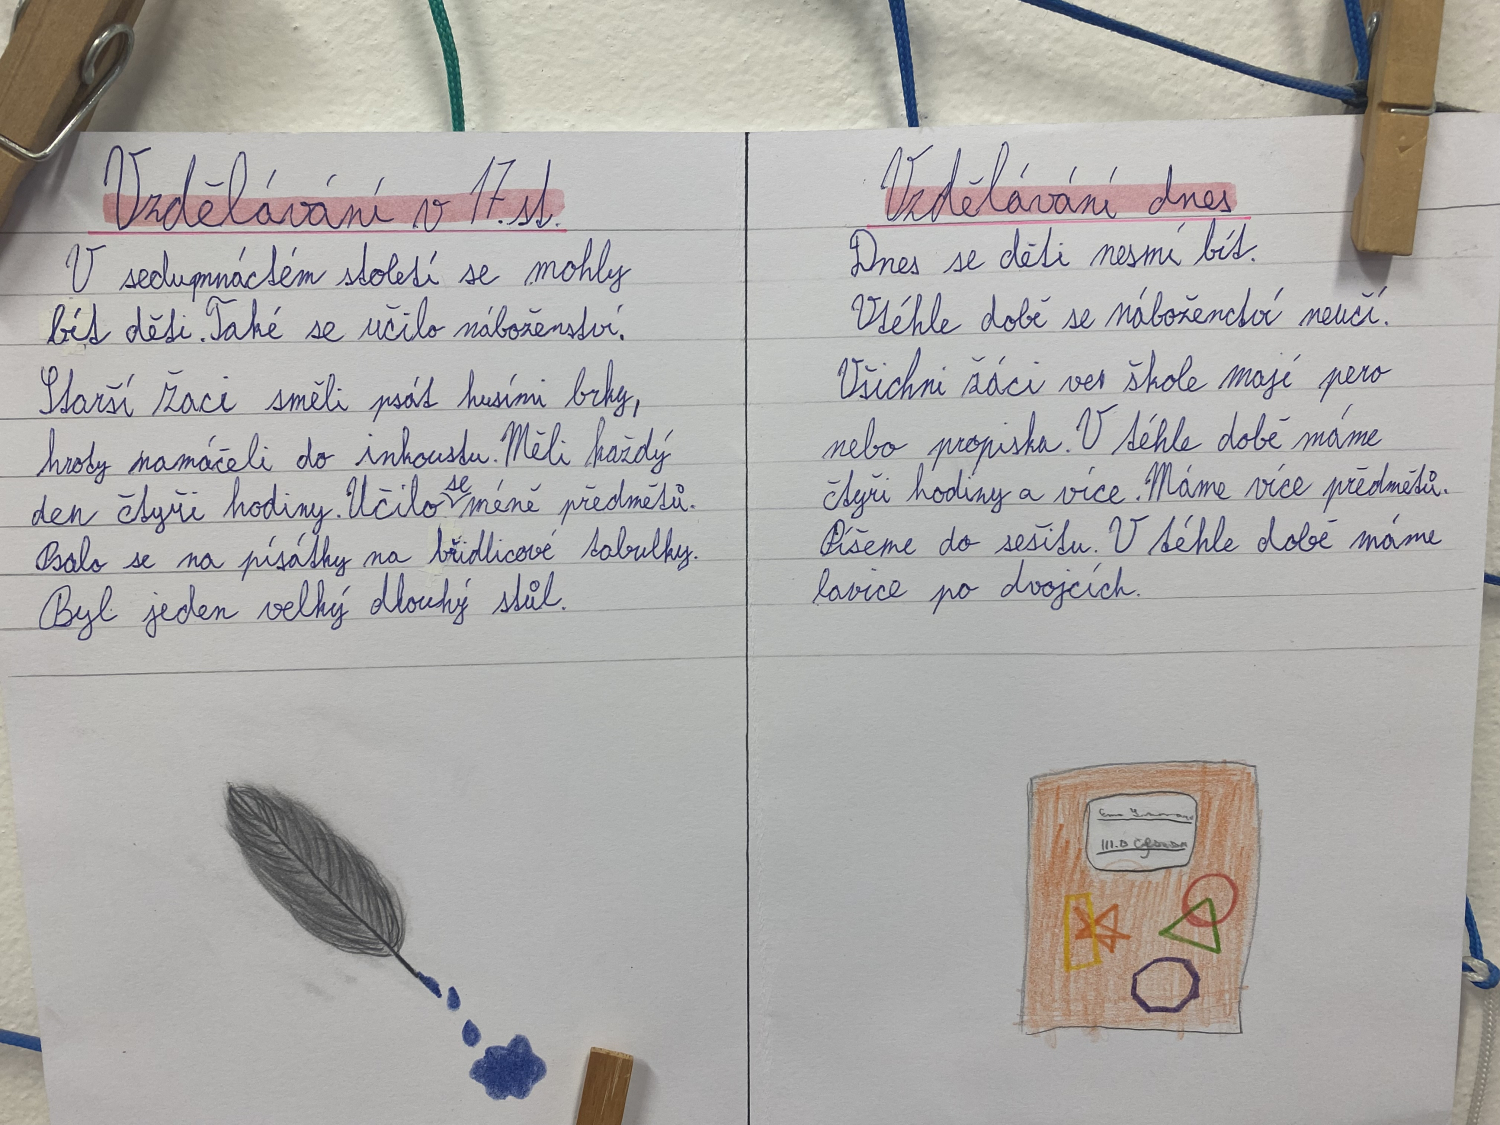 Vzdělávání v 17. st.
V sedumnáctém století se mohly
bít děti. Také se učilo náboženství.
Starší žaci směli psát husími brky,
hroty namáčeli do inkoustu. Měli každý
den čtyři hodiny. Učilo se méně předmětů.
Psalo se na písátky na břidlicové tabulky.
Byl jeden velký dlouhý stůl.
Vzdělávání dnes
Dnes se děti nesmí bít.
Vtéhle době se náboženctví neučí.
Všichni žáci ve škole mají pero
nebo propiska. V téhle době máme
čtyři hodiny a více. Máme více předmětů.
Píšeme do sešitu. V téhle době máme
lavice po dvojcích.
III.D